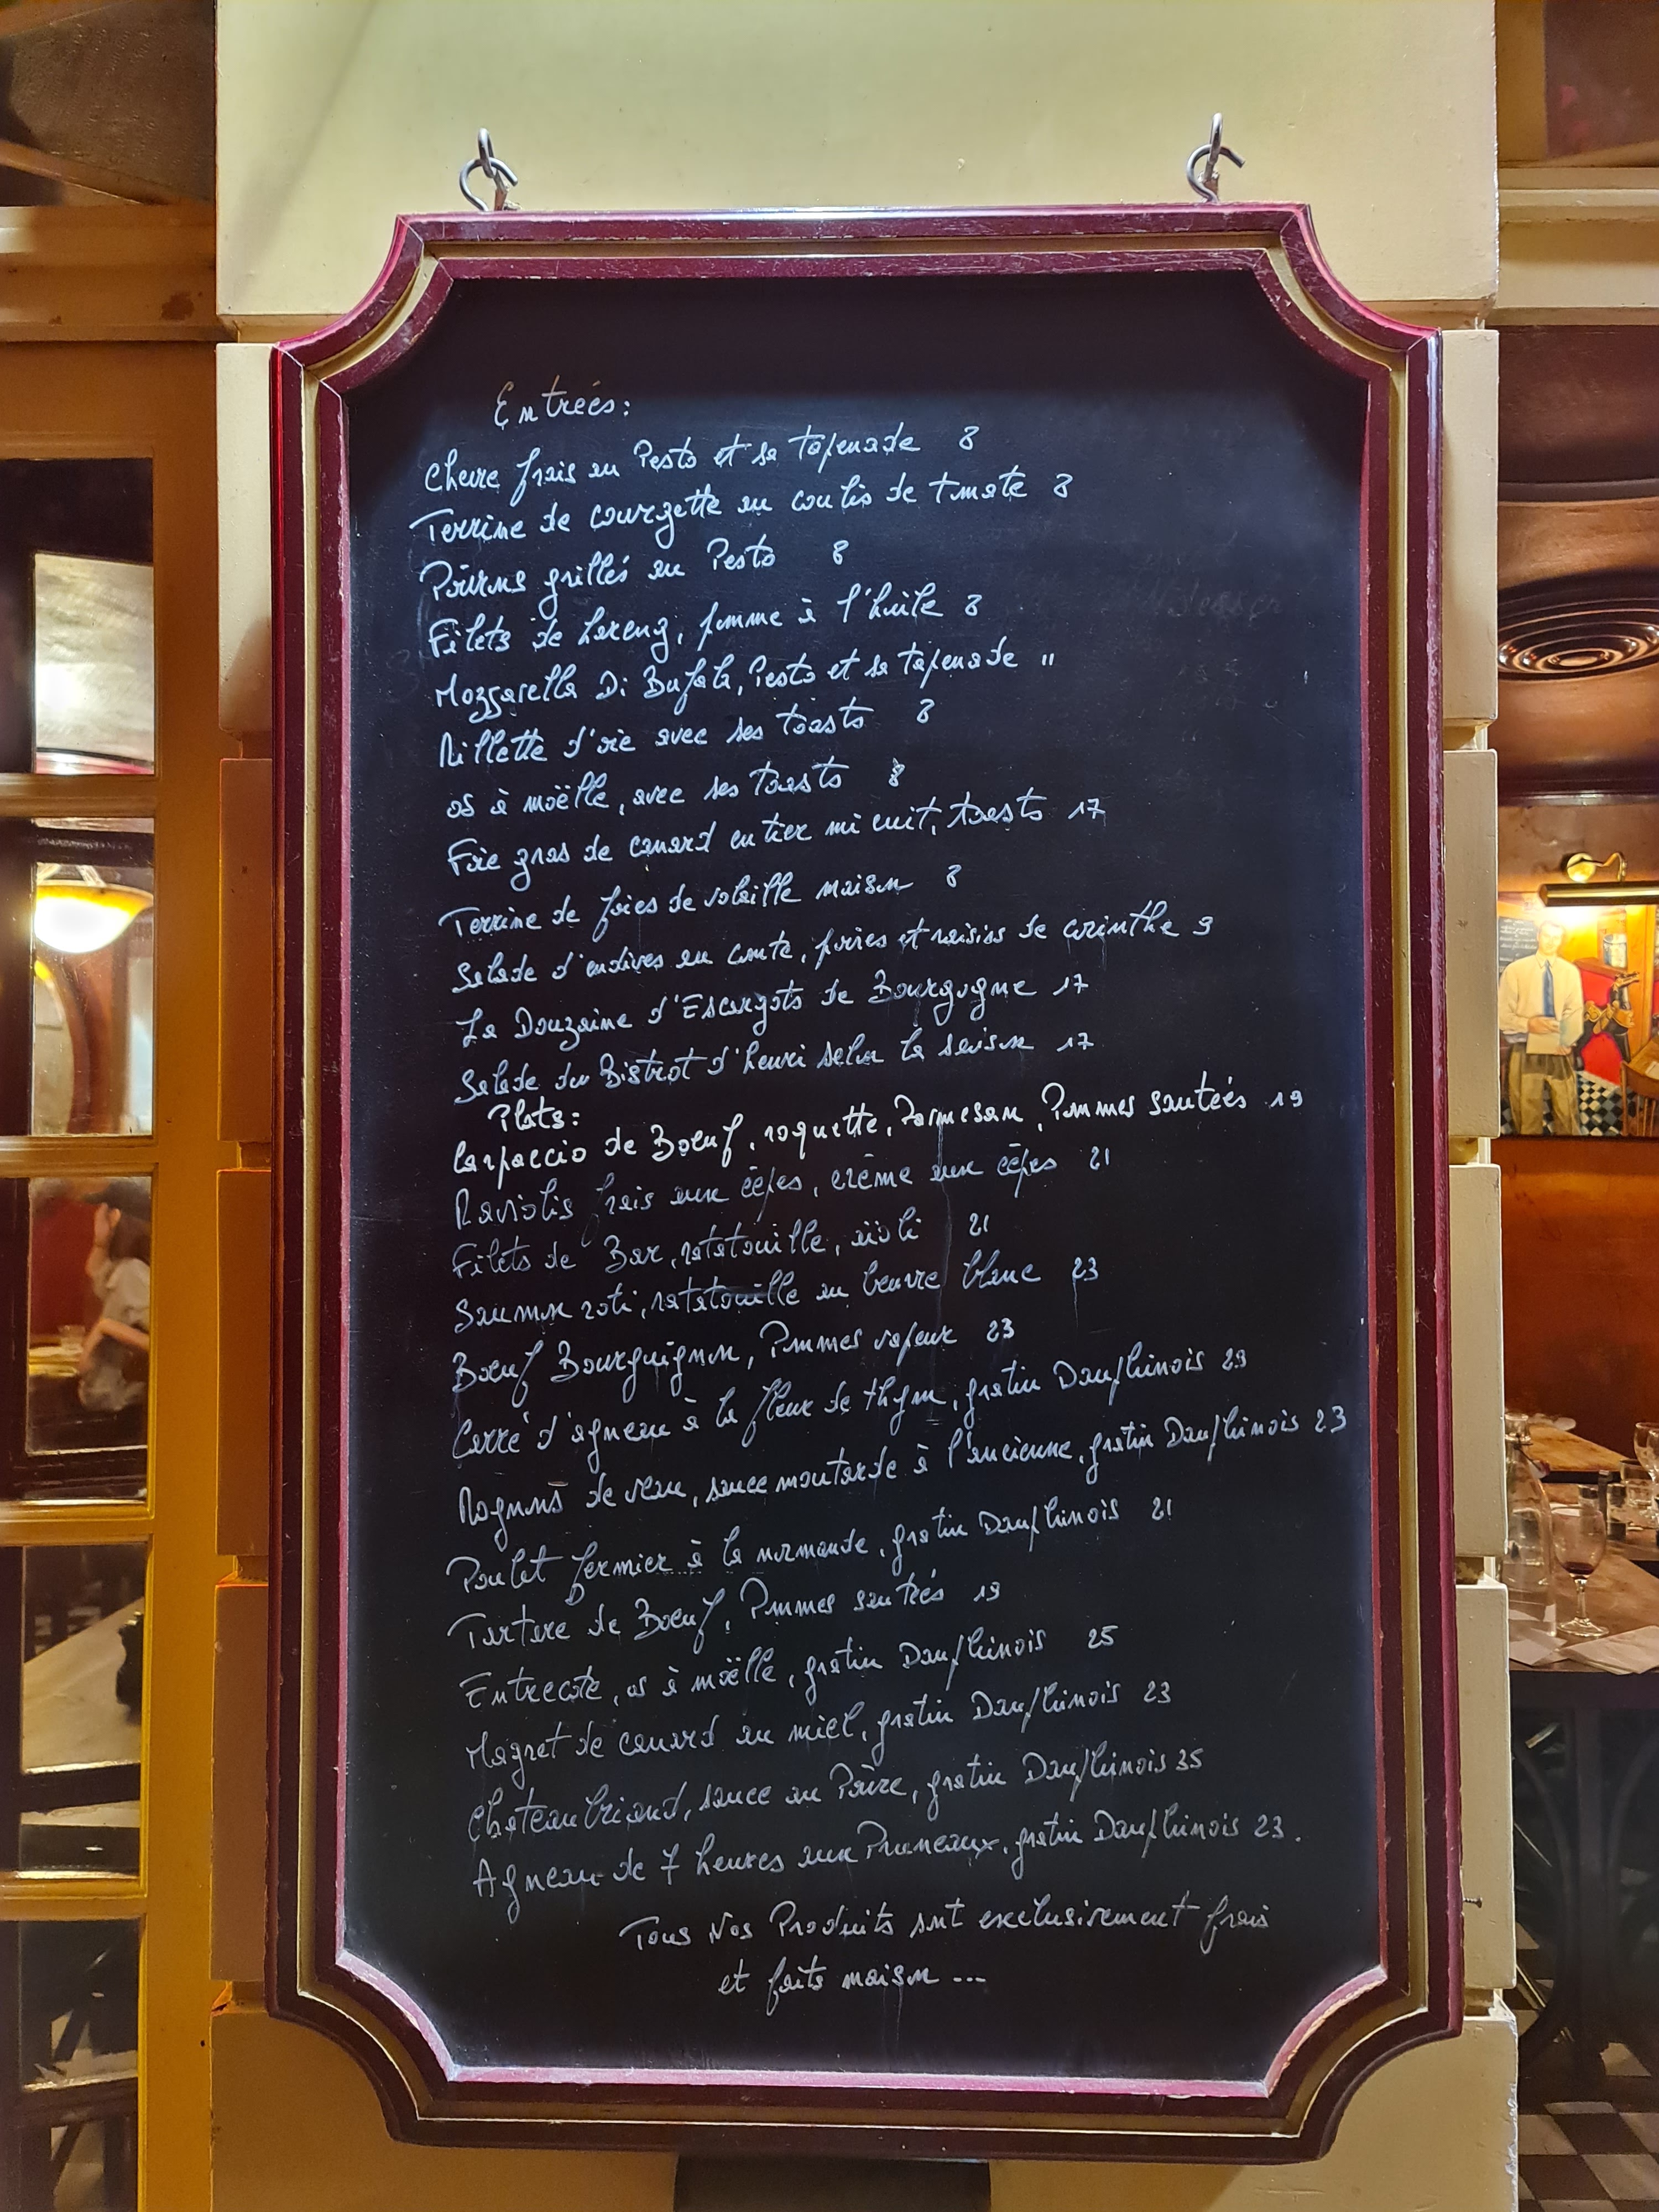 Entrées:
Chevre frais au Pesto et sa tapenade 8
Terrine de courgette au coulis de tomate 8
Poivrons grillés au Pesto 8
Filets de hareng, pomme à l'huile 8
Mozzarella Di Bufala, Pesto et sa tapenade 11
Rillette d'oie avec ses toasts 8
os à moëlle, avec ses toasts 8
Foie gras de canard entier mi cuit, toasts 17
Terrine de foies de volaille maison 8
Salade d'endives au comte, poires et raisins de corinthe 9
La Douzaine d'Escargots de Bourgogne 17
Salade du Bistrot d'henri selon la saison 17
Plats:
Carpaccio de Boeuf, roquette, Parmesan, Pommes sautées 19
Raviolis frais aux cêpes, crème aux cêpes 21
Filets de Bar, ratatouille, aïoli 21
Saumon roti, ratatouille au beurre blanc 23
Boeuf Bourguignon, Pommes vapeur 23
Carré d'agneau à la fleur de thym, gratin Dauphinois 29
Rognons de veau, sauce moutarde à l'ancienne, gratin Dauphinois 23
Poulet fermier à la normande, gratin Dauphinois 21
Tartare de Boeuf, Pommes sautées 19
Entrecote, os à moëlle, gratin Dauphinois 25
Magret de canard au miel, gratin Dauphinois 23
Chateaubriand, sauce au Poivre, gratin Dauphinois 35
Agneau de 7 heures aux Pruneaux, gratin Dauphinois 23.
Tous Nos Produits sont exclusivement frais
et faits maison ...